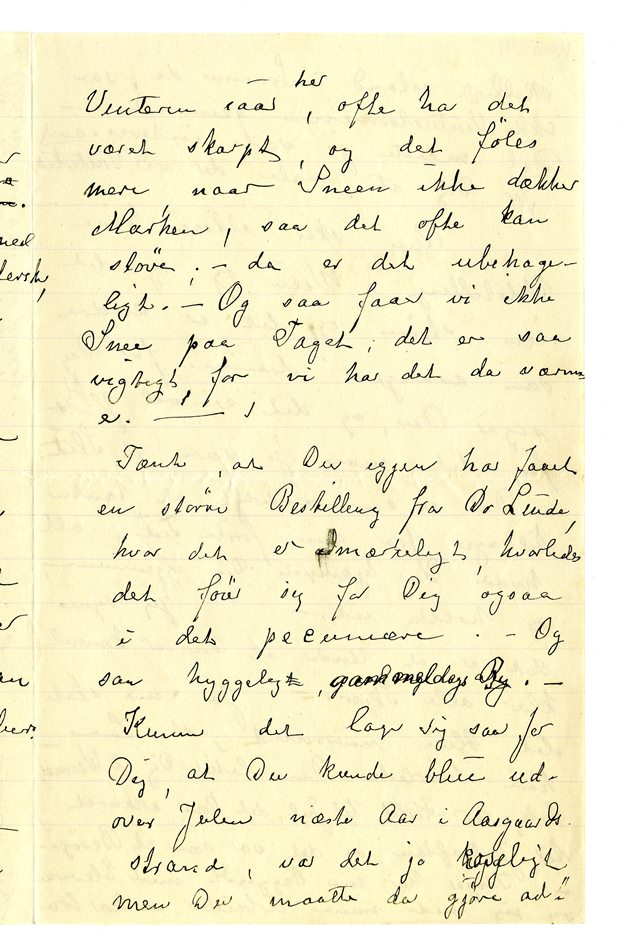 her
Vinteren iaar, ofte har det
været skarpt, og det føles
mere, naar Sneen ikke dækker
Marken, saa det ofte kan
støve; – da er det ubehage-
ligt. – Og saa faaer vi ikke
Snee paa Taget, det er saa
vigtigt, for vi har det da varm-
e. —
Tænk, at Du igjen har faaet
en større Bestilling fra Dr Linde,
hvor det er mærkeligt, hvorledes
det føier sig for Dig ogsaa
i det pecuniære. – Og
saa hyggelig, gammeldags By. –
Kunne det lage sig saa for
Dig, at Du kunde blive ud-
over Julen næste Aar i Aasgaards-
strand, var det jo
men Du maatte da gjøre ad